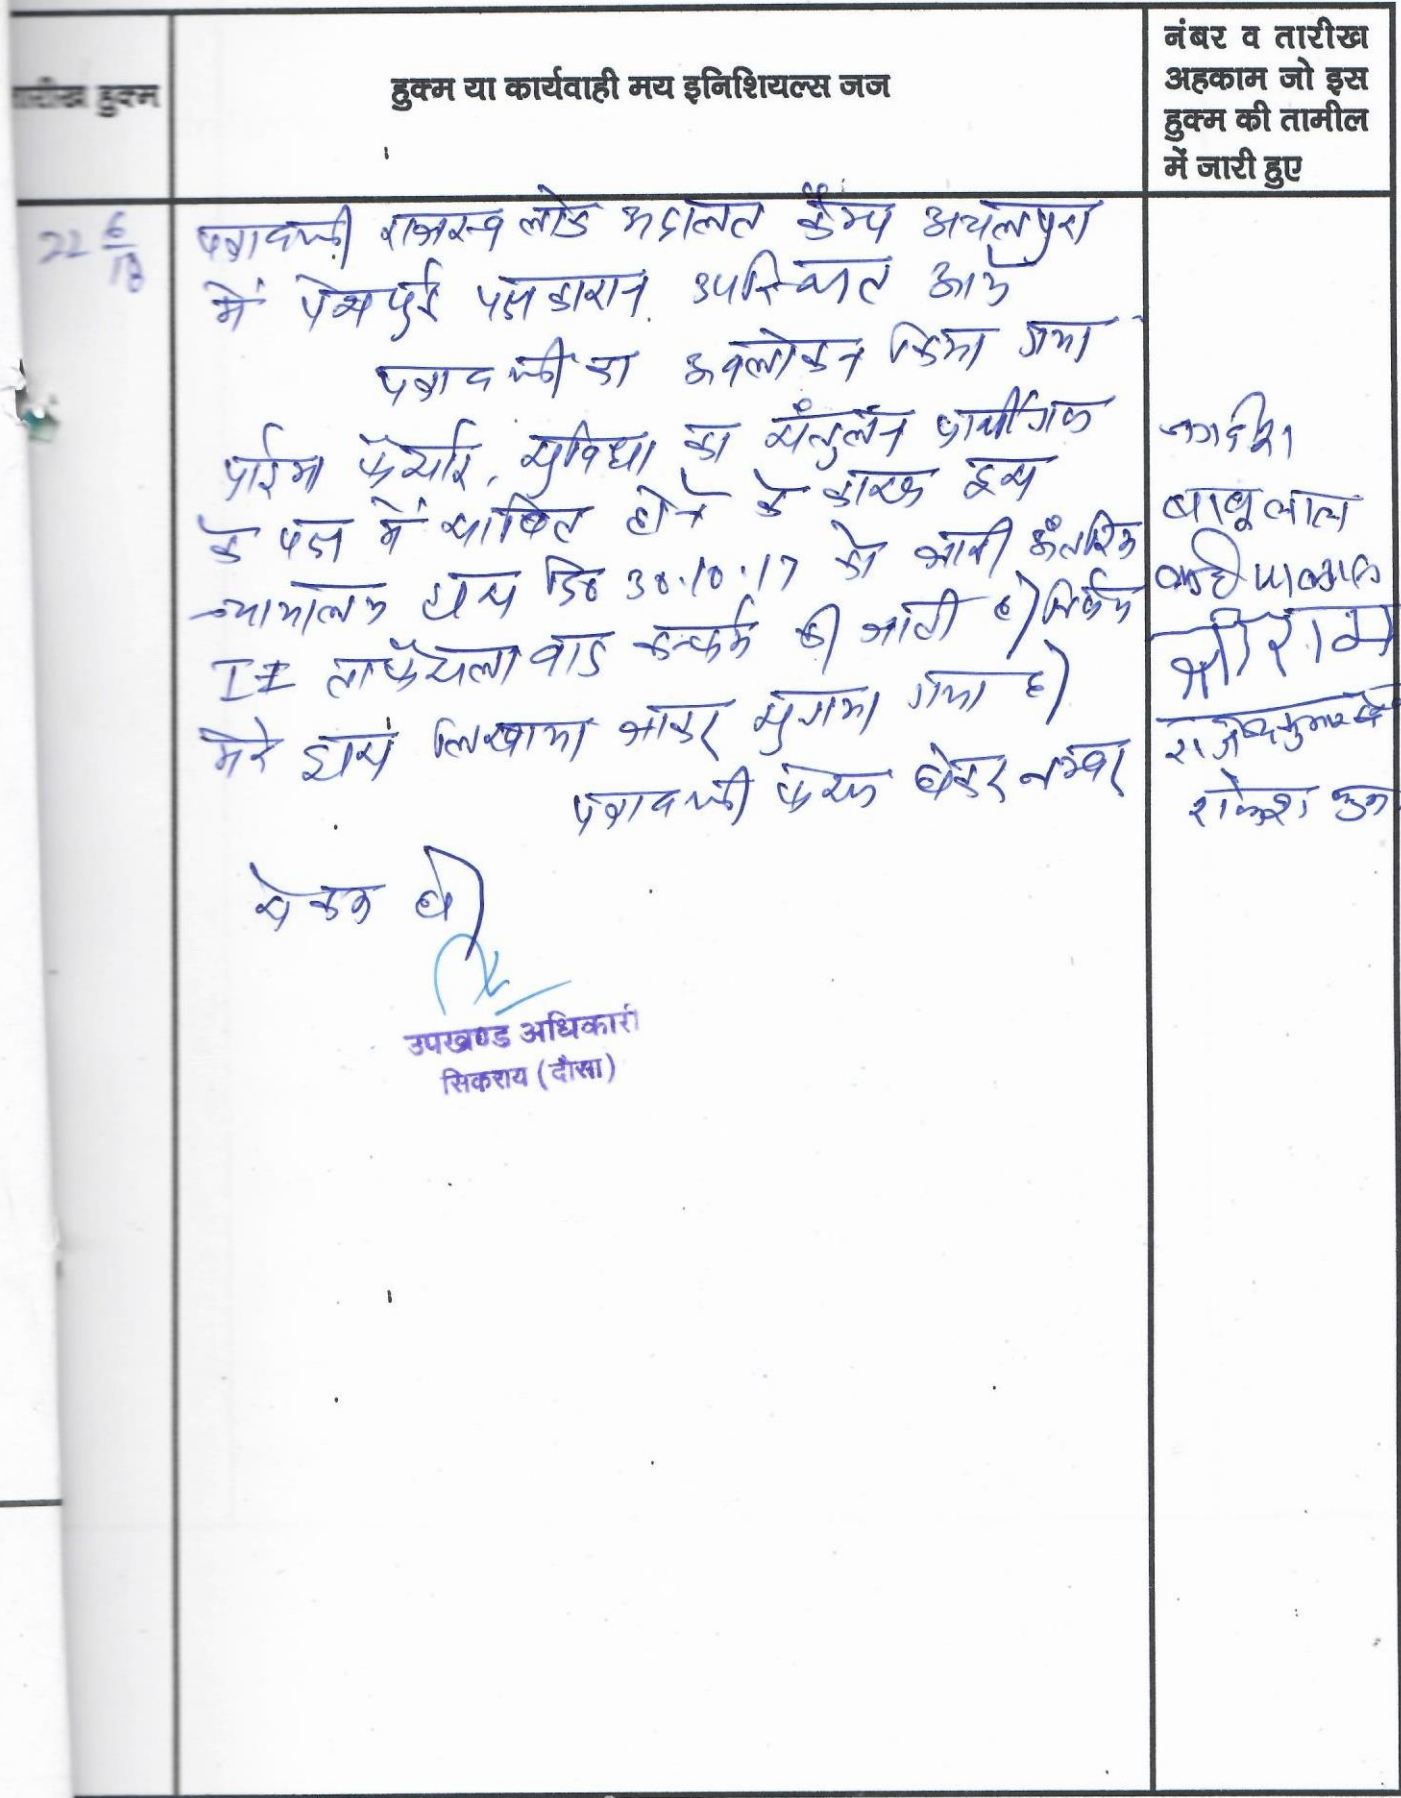 तारीख हुक्म
हुक्म या कार्यवाही मय इनिशियल्स जज
नंबर व तारीख
अहकाम जो इस
हुक्म की तामील
में जारी हुए
22 6/18
पत्रावली राजस्व लोक अदालत कैम्प अचलपुरा
में पेश हुई पक्षकारान उपस्थित आये
पत्रावली का अवलोकन किया गया
प्राईमा फेसाई, सुविधा का संतुलन प्रार्थीगण
के पक्ष में साबित होने के कारण इस
न्यायालय द्वारा दि० 30.10.17 को जारी अंतरिम
T I ताफैसला वाद कन्फर्म की जाती है। निर्णय
मेरे द्वारा लिखाया जाकर सुनाया गया है।
पत्रावली फैसल होकर नम्बर
से कम हो।
उपखण्ड अधिकारी
सिकराय (दौसा)
जगदीश
बाबुलाल
श्रीराम
राजेन्द्र कुमार
राकेश